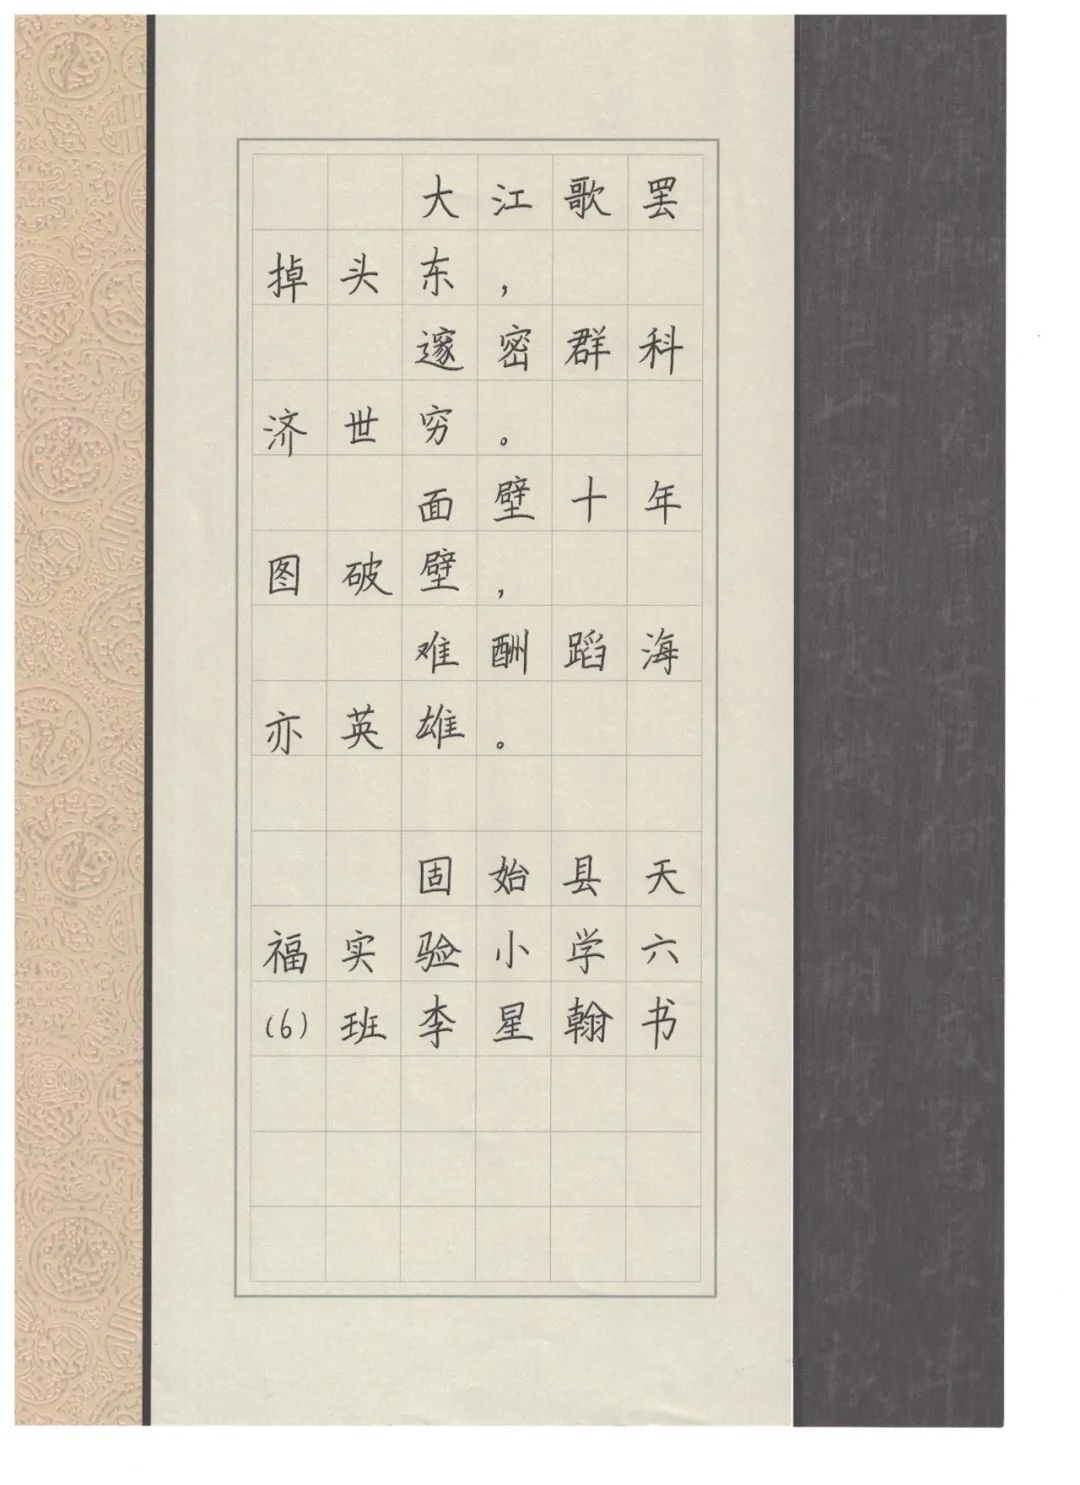 大江歌罢
掉头东，
邃密群科
济世穷。
面壁十年
图破壁，
难酬蹈海
亦英雄。
固始县天
福实验小学六
(6)班李星翰书